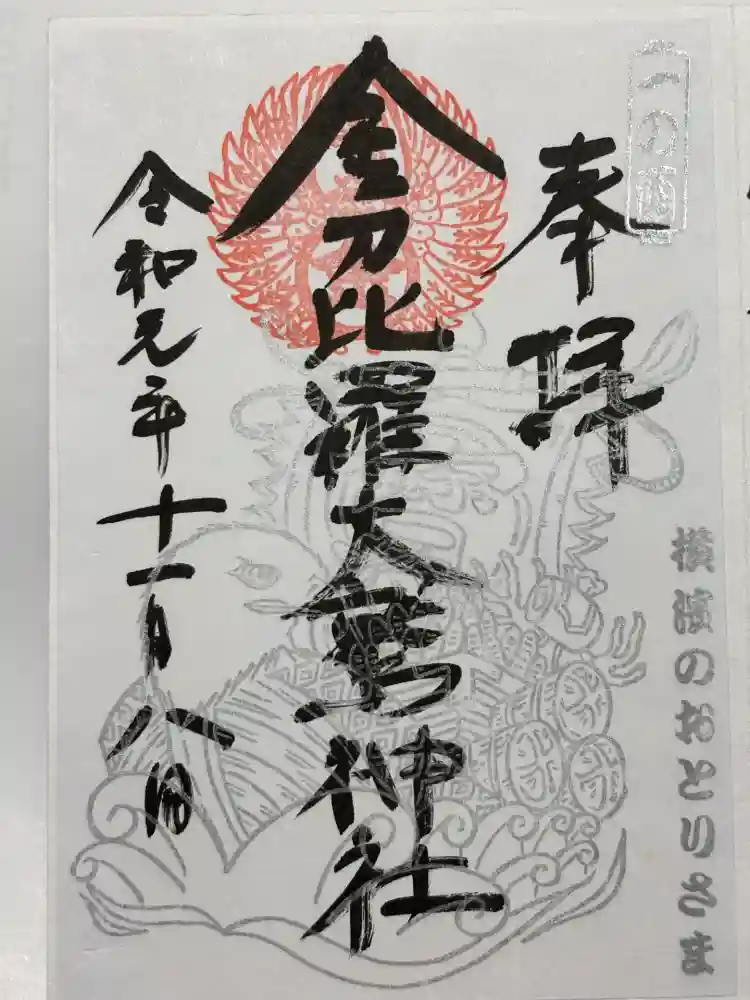 一の酉
奉拝
横濱のおとりさま
金刀比羅大鷲神社
令和元年十一月八日